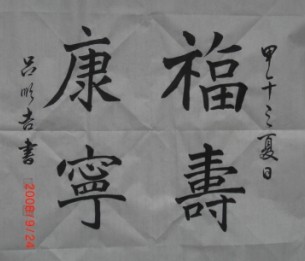 福壽
康寧
甲午之夏日
呂順吉書
2008/9/24